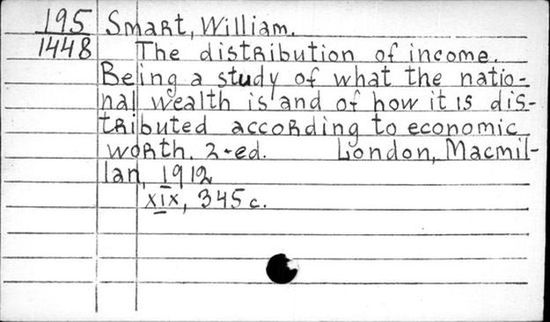 195 Smart, William.
1448 The distribution of income.
Being a study of what the natio-
nal wealth is and of how it is dis-
tributed according to economic
worth. 2-ed. London, Macmil-
lan, 1912
xix, 345 c.